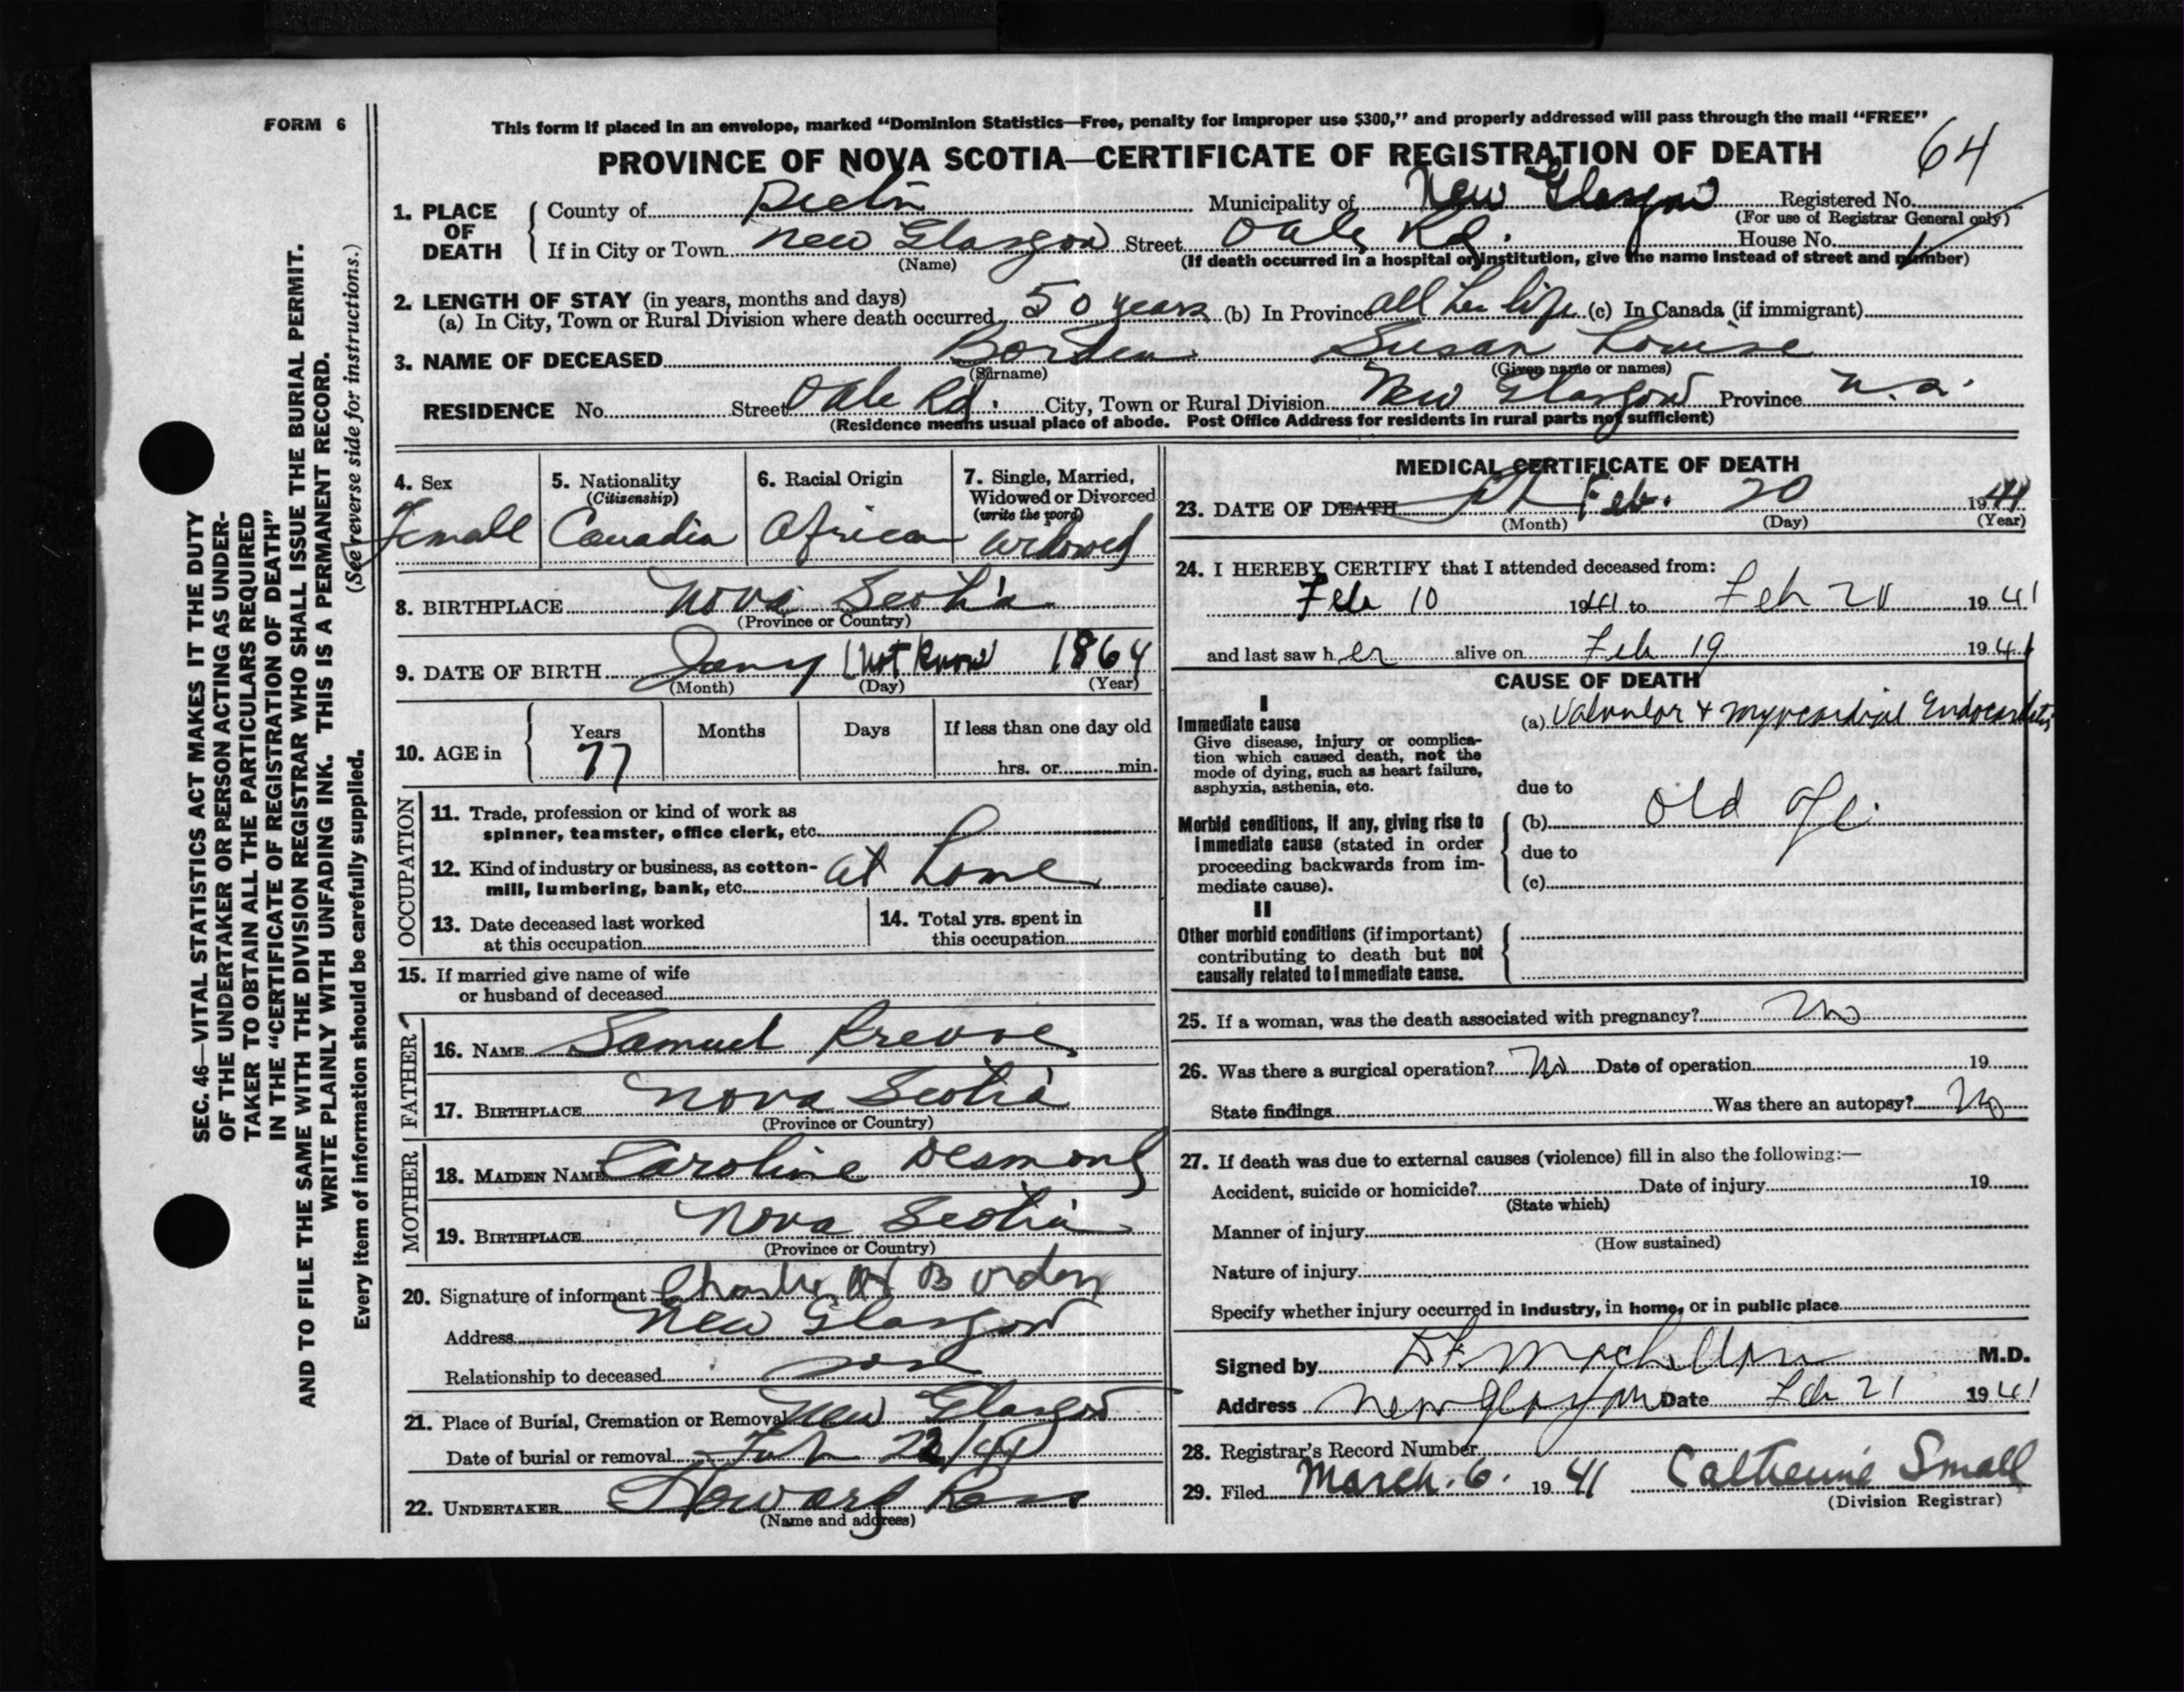 FORM 6
This form if placed in an envelope, marked “Dominion Statistics—Free, penalty for improper use $300,” and properly addressed will pass through the mail “FREE”
PROVINCE OF NOVA SCOTIA—CERTIFICATE OF REGISTRATION OF DEATH 64
1. PLACE OF DEATH
County of Pictou Municipality of New Glasgow Registered No.
(For use of Registrar General only)
If in City or Town New Glasgow Street Rd. House No.
(Name) (If death occurred in a hospital or institution, give the name instead of street and number)
2. LENGTH OF STAY (in years, months and days)
(a) In City, Town or Rural Division where death occurred 50 years (b) In Province all her life (c) In Canada (if immigrant)
3. NAME OF DECEASED Borden Susan Louise
(Surname) (Given name or names)
RESIDENCE No. Street Rd. City, Town or Rural Division New Glasgow Province N.S.
(Residence means usual place of abode. Post Office Address for residents in rural parts not sufficient)
4. Sex
Female
5. Nationality
(Citizenship)
Canadia
6. Racial Origin
African
7. Single, Married,
Widowed or Divorced
(write the word)
Widowed
8. BIRTHPLACE Nova Scotia
(Province or Country)
9. DATE OF BIRTH Jany (not know) 1864
(Month) (Day) (Year)
10. AGE in
Years Months Days If less than one day old
77 hrs. or min.
OCCUPATION
11. Trade, profession or kind of work as
spinner, teamster, office clerk, etc.
12. Kind of industry or business, as cotton-
mill, lumbering, bank, etc. at home
13. Date deceased last worked
at this occupation
14. Total yrs. spent in
this occupation
15. If married give name of wife
or husband of deceased
FATHER
16. NAME Samuel
17. BIRTHPLACE Nova Scotia
(Province or Country)
MOTHER
18. MAIDEN NAME Caroline Desmond
19. BIRTHPLACE Nova Scotia
(Province or Country)
20. Signature of informant Borden
Address New Glasgow
Relationship to deceased son
21. Place of Burial, Cremation or Removal New Glasgow
Date of burial or removal Feb 22/41
22. UNDERTAKER Howard Ross
(Name and address)
MEDICAL CERTIFICATE OF DEATH
23. DATE OF DEATH Feb. 20 1941
(Month) (Day) (Year)
24. I HEREBY CERTIFY that I attended deceased from:
Feb 10 1941 to Feb 20 1941
and last saw h er alive on Feb 19 1941
CAUSE OF DEATH
I
Immediate cause
Give disease, injury or complica-
tion which caused death, not the
mode of dying, such as heart failure,
asphyxia, asthenia, etc.
(a) Valvular & myocardial Endocarditis
due to
Morbid conditions, if any, giving rise to
immediate cause (stated in order
proceeding backwards from im-
mediate cause).
(b) old age
due to
(c)
II
Other morbid conditions (if important)
contributing to death but not
causally related to immediate cause.
25. If a woman, was the death associated with pregnancy? No
26. Was there a surgical operation? No Date of operation 19
State findings Was there an autopsy? No
27. If death was due to external causes (violence) fill in also the following:—
Accident, suicide or homicide? Date of injury 19
(State which)
Manner of injury
(How sustained)
Nature of injury
Specify whether injury occurred in industry, in home, or in public place
Signed by M.D.
Address New Glasgow Date Feb 21 1941
28. Registrar’s Record Number
29. Filed March. 6. 1941 Catherine Small
(Division Registrar)
SEC. 46—VITAL STATISTICS ACT MAKES IT THE DUTY
OF THE UNDERTAKER OR PERSON ACTING AS UNDER-
TAKER TO OBTAIN ALL THE PARTICULARS REQUIRED
IN THE “CERTIFICATE OF REGISTRATION OF DEATH”
AND TO FILE THE SAME WITH THE DIVISION REGISTRAR WHO SHALL ISSUE THE BURIAL PERMIT.
WRITE PLAINLY WITH UNFADING INK. THIS IS A PERMANENT RECORD.
(See reverse side for instructions.)
Every item of information should be carefully supplied.